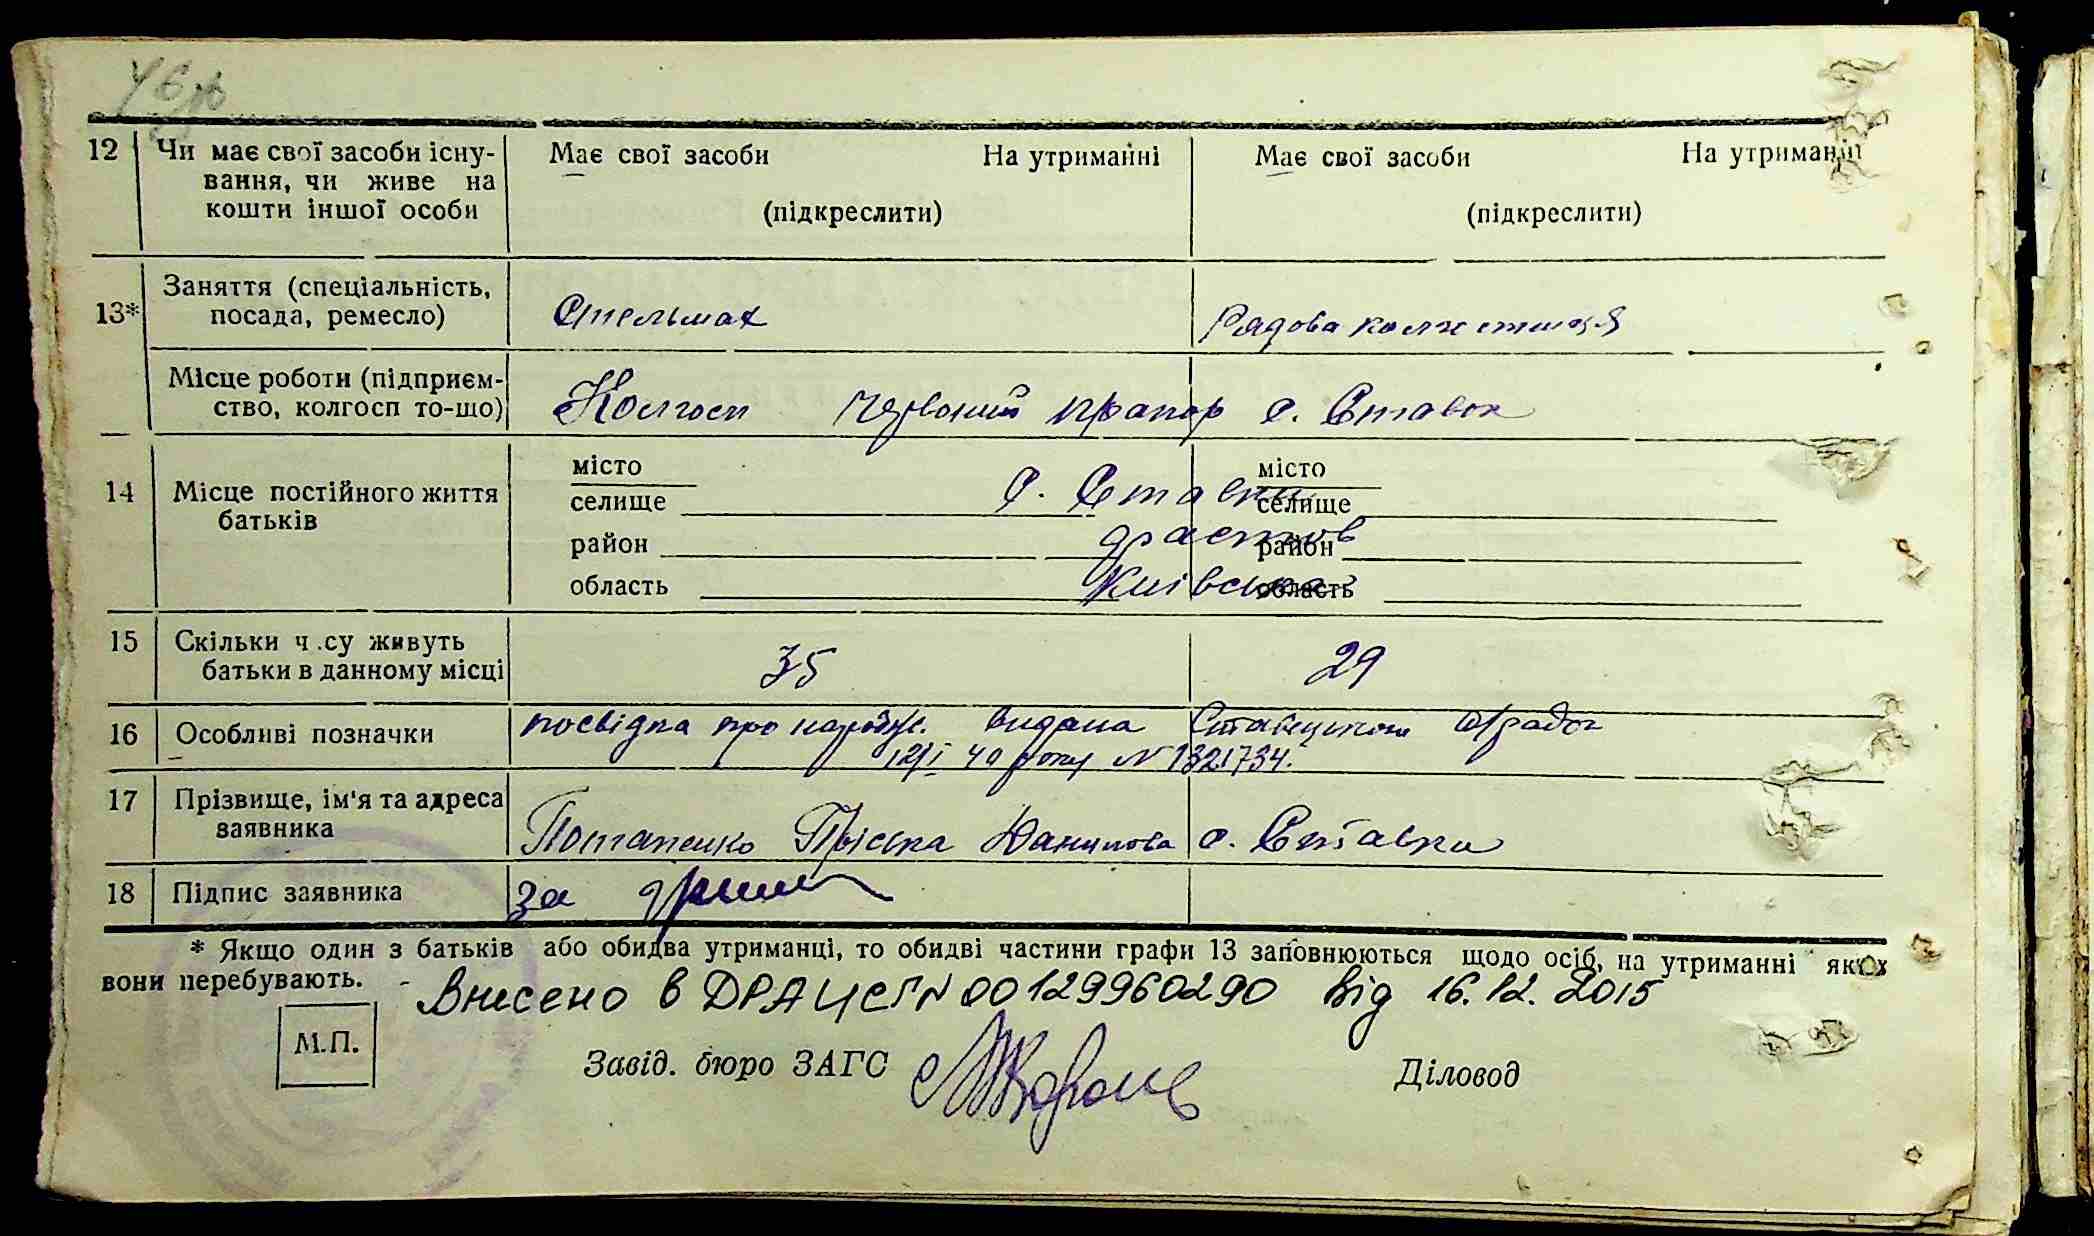 12 Чи має свої засоби існу- Має свої засоби На утриманні Має свої засоби На утриманні
вання, чи живе на
кошти іншої особи (підкреслити) (підкреслити)
13* Заняття (спеціальність,
посада, ремесло) Стельмах Рядова колгестниця
Місце роботи (підприєм-
ство, колгосп то-що) Колгосп Червоний прапор с. Ставок
місто місто
14 Місце постійного життя селище с. Ставки селище
батьків
район Фастов район
область Київська область
15 Скільки ч.су живуть
батьки в данному місці 35 29
16 Особливі позначки посвідка про народж. видана Ставицькою с/радою
12/І 40 року N 1321734.
17 Прізвище, ім'я та адреса
заявника Потапенко Пріська Данилова с. Ставки
18 Підпис заявника за
* Якщо один з батьків або обидва утриманці, то обидві частини графи 13 заповнюються щодо осіб, на утриманні яких
вони перебувають. - Внесено в ДРАЦСГ N 00129960290 від 16.12.2015
М.П. Завід. бюро ЗАГС Діловод